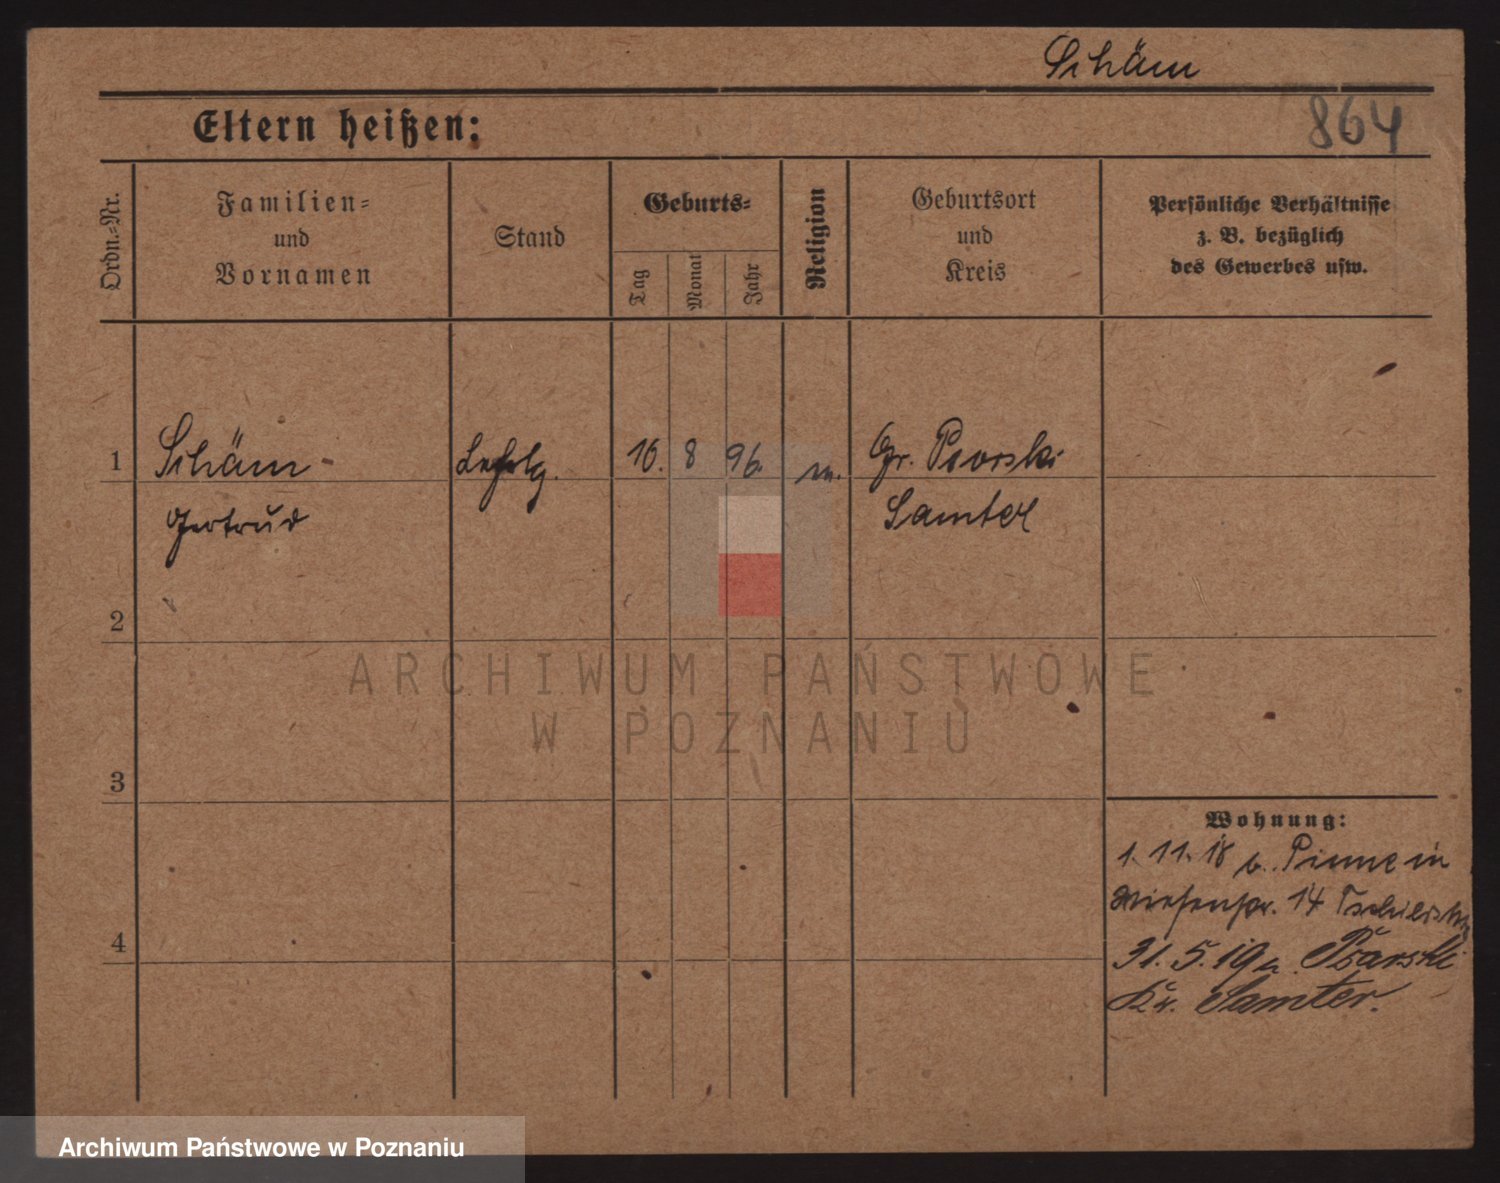 Schäm
864
Eltern heißen:
Ordn.-Nr.
Familien-
und
Vornamen
Stand
Geburts-
Tag
Monat
Jahr
Religion
Geburtsort
und
Kreis
Persönliche Verhältnisse
z. B. bezüglich
des Gewerbes usw.
1
Schäm
16. 8 96.
Gr. Psorski
Gertrud
Samter
2
ARCHIWUM PAŃSTWOWE
W POZNANIU
3
Wohnung:
1. 11. 18 v. Pinne in
Wiesenstr. 14
4
31. 5. 19 n. Psarski
Kr. Samter.
Archiwum Państwowe w Poznaniu